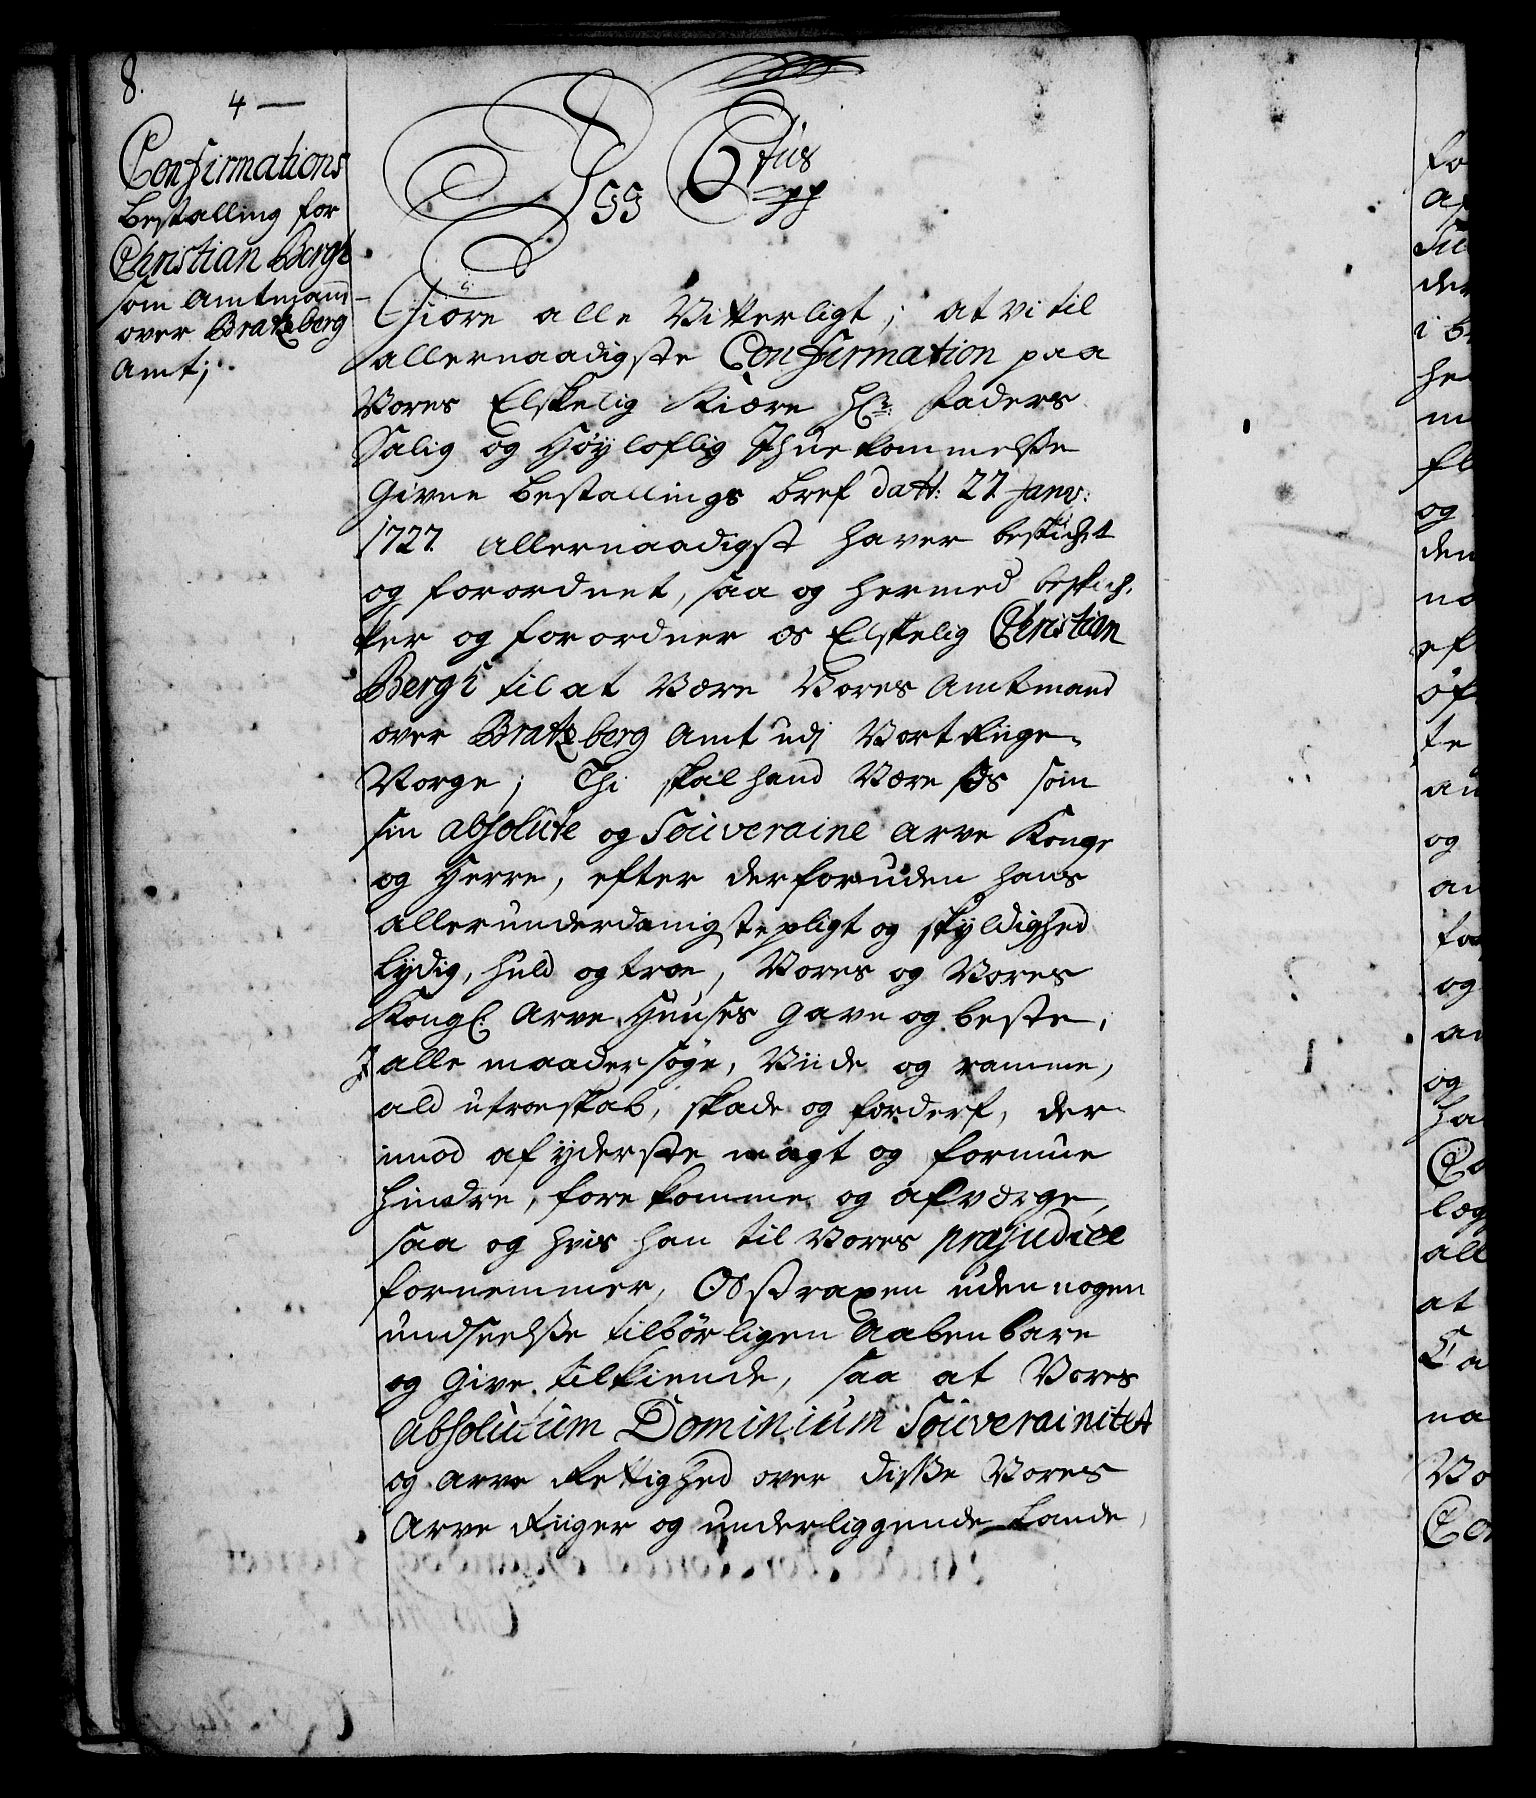 8.
4 —
Confirmations
bestalling for
Christian Bergh
som Amtmand
over Bratzberg
Amt;
C 6tus
Giöre alle Vitterligt; at vi til
allernaadigste Confirmation paa
Vores Elskelig Kiære Hr: Faders
Salig og Høyloflig Ihuekommelse
Givne bestallings bref datt: 27 Janv:
1727. allernaadigst haver beskichet
og forordnet, saa og hermed beskich,
ker og forordner os Elskelig Christian
Bergh til at Være Vores Amtmand
over Bratzberg Amt udj Vort Riige
Norge; Thi skal hand Være Os som
sin absolute og Souveraine Arve Konge
og Herre, efter derforuden hans
allerunderdanigste pligt og skyldighed
lydig, huld og troe, Vores og Vores
Kongl: Arve Huuses Gavn og beste,
I alle maader søge, Viide og ramme,
ald utroeskab, skade og forderf, der
imod af yderste magt og formue
hindre, forekomme og afværge,
saa og hvis han til Vores præjudice
fornemmer, Os straxen uden nogen
undseelse tilbörligen Aabenbare
og Give tilkiende, saa at Vores
absolutum Dominium Souverainitet
og Arve Rettighed over disse Vores
Arve Riiger og underliggende Lande,